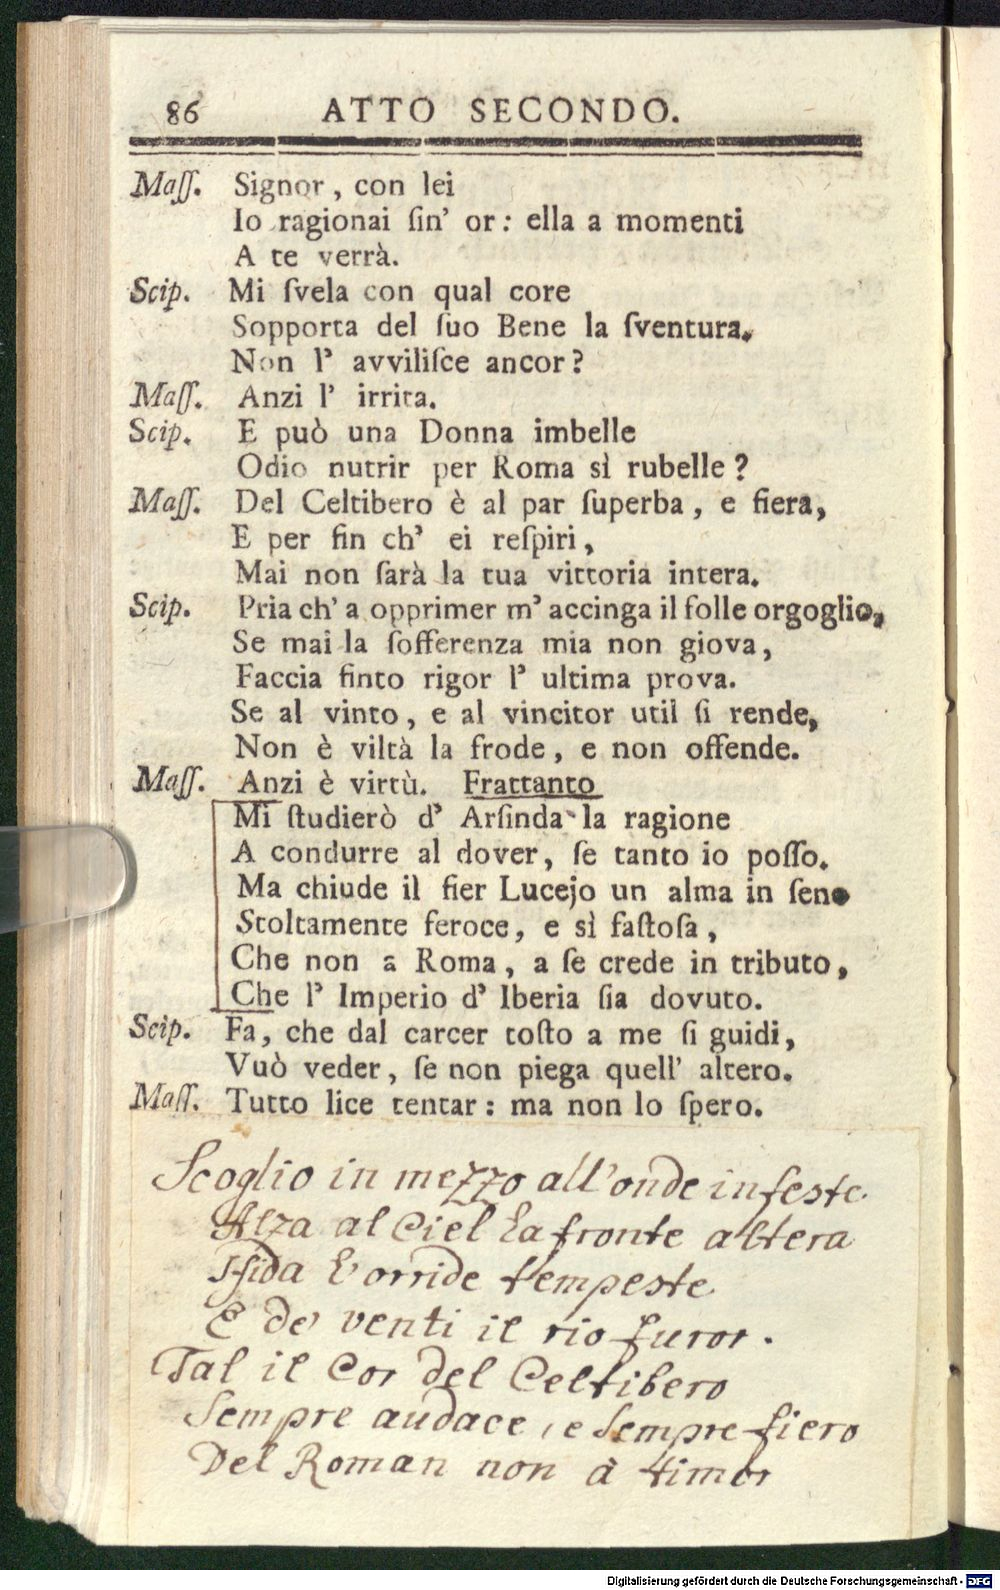 86 ATTO SECONDO.
Maſſ. Signor, con lei
Io ragionai ſin' or: ella a momenti
A te verrà.
Scip. Mi ſvela con qual core
Sopporta del ſuo Bene la ſventura.
Non l' avviliſce ancor?
Maſſ. Anzi l' irrita.
Scip. E può una Donna imbelle
Odio nutrir per Roma sì rubelle?
Maſſ. Del Celtibero è al par ſuperba, e fiera,
E per fin ch' ei reſpiri,
Mai non ſarà la tua vittoria intera.
Scip. Pria ch' a opprimer m' accinga il folle orgoglio,
Se mai la ſofferenza mia non giova,
Faccia finto rigor l' ultima prova.
Se al vinto, e al vincitor util ſi rende,
Non è viltà la frode, e non offende.
Maſſ. Anzi è virtù. Frattanto
Mi ſtudierò d' Arſinda la ragione
A condurre al dover, ſe tanto io poſſo.
Ma chiude il fier Lucejo un alma in ſeno
Stoltamente feroce, e sì faſtoſa,
Che non a Roma, a ſe crede in tributo,
Che l' Imperio d' Iberia ſia dovuto.
Scip. Fa, che dal carcer toſto a me ſi guidi,
Vuò veder, ſe non piega quell' altero.
Maſſ. Tutto lice tentar: ma non lo ſpero.
Scoglio in mezzo all'onde infeste
Alza al Ciel la fronte altera
Sfida l'orride tempeste
E de' venti il rio furor.
Tal il Cor del Celtibero
Sempre audace, e sempre fiero
Del Roman non à timor
Digitalisierung gefördert durch die Deutsche Forschungsgemeinschaft - DFG